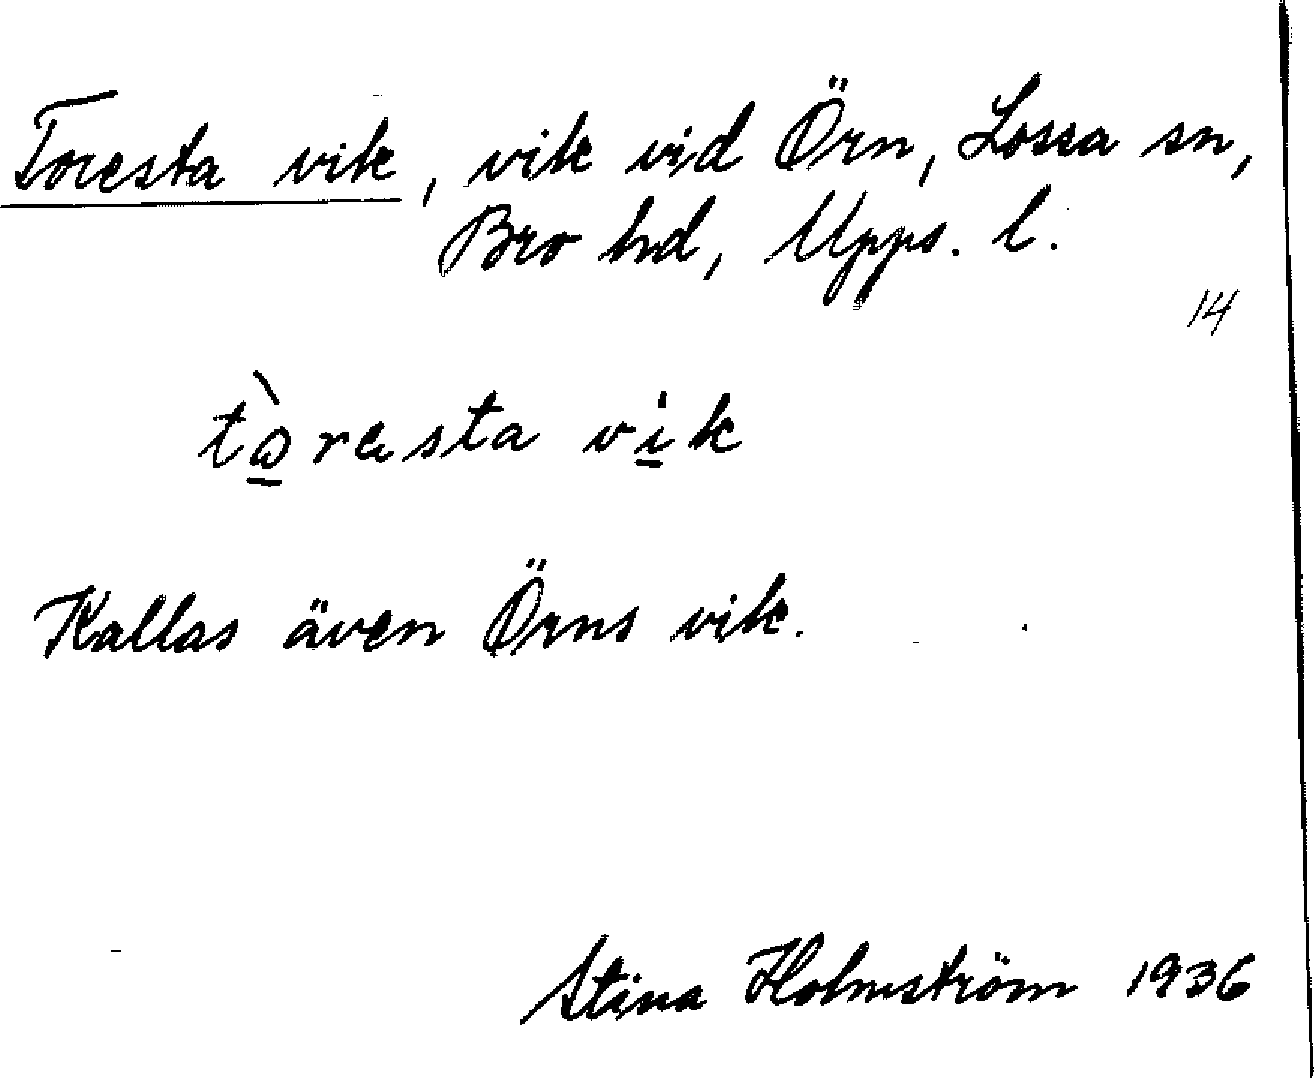 Toresta vik, vik vid Örn, Lossa sn,
Bro hd, Upps. l.
14
vik
Kallas även Örns vik.
Stina Holmström 1936